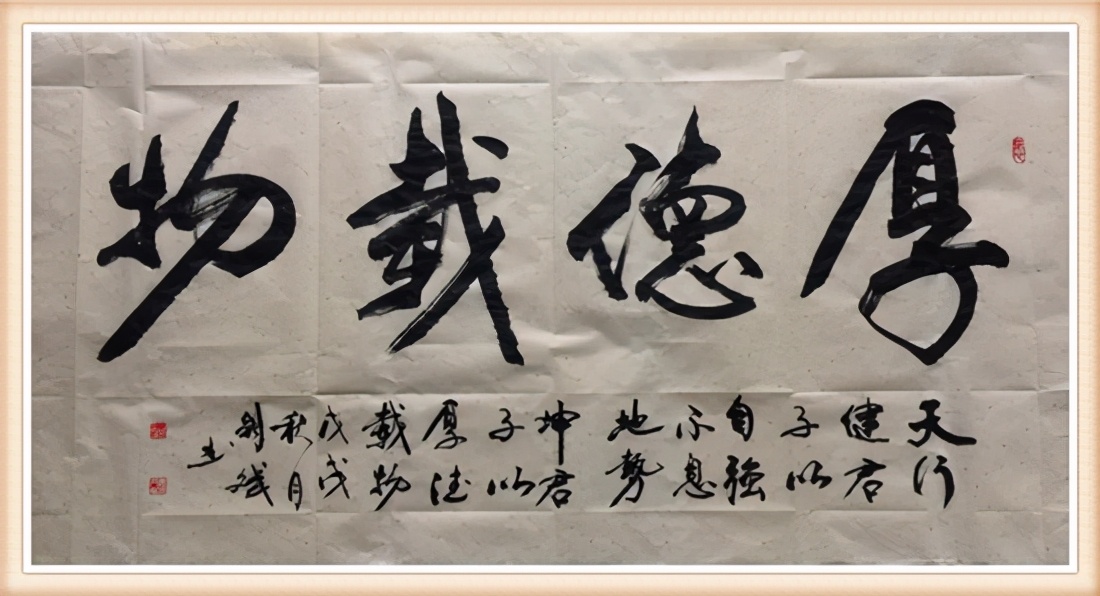 厚德載物
天行
健君
子以
自強
不息
地勢
坤君
子以
厚德
載物
戊戌
秋月
书